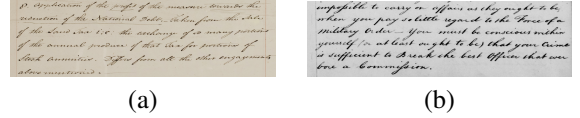 8. Application of the profit of the measure towards the
reduction of the National Debt, taken from the State
of the Land Tax i.e. the exchange of so many portions
of the annual produce of that Tax for portions of
Stock annuities. Differs from all the other engagements
above mentioned.
impossible to carry on affairs as they ought to be,
when you pay so little regard to the Force of a
Military Order — You must be conscious within
yourself (or at least ought to be) that your Crime
is sufficient to Break the best Officer that ever
bore a Commission.
(a)
(b)